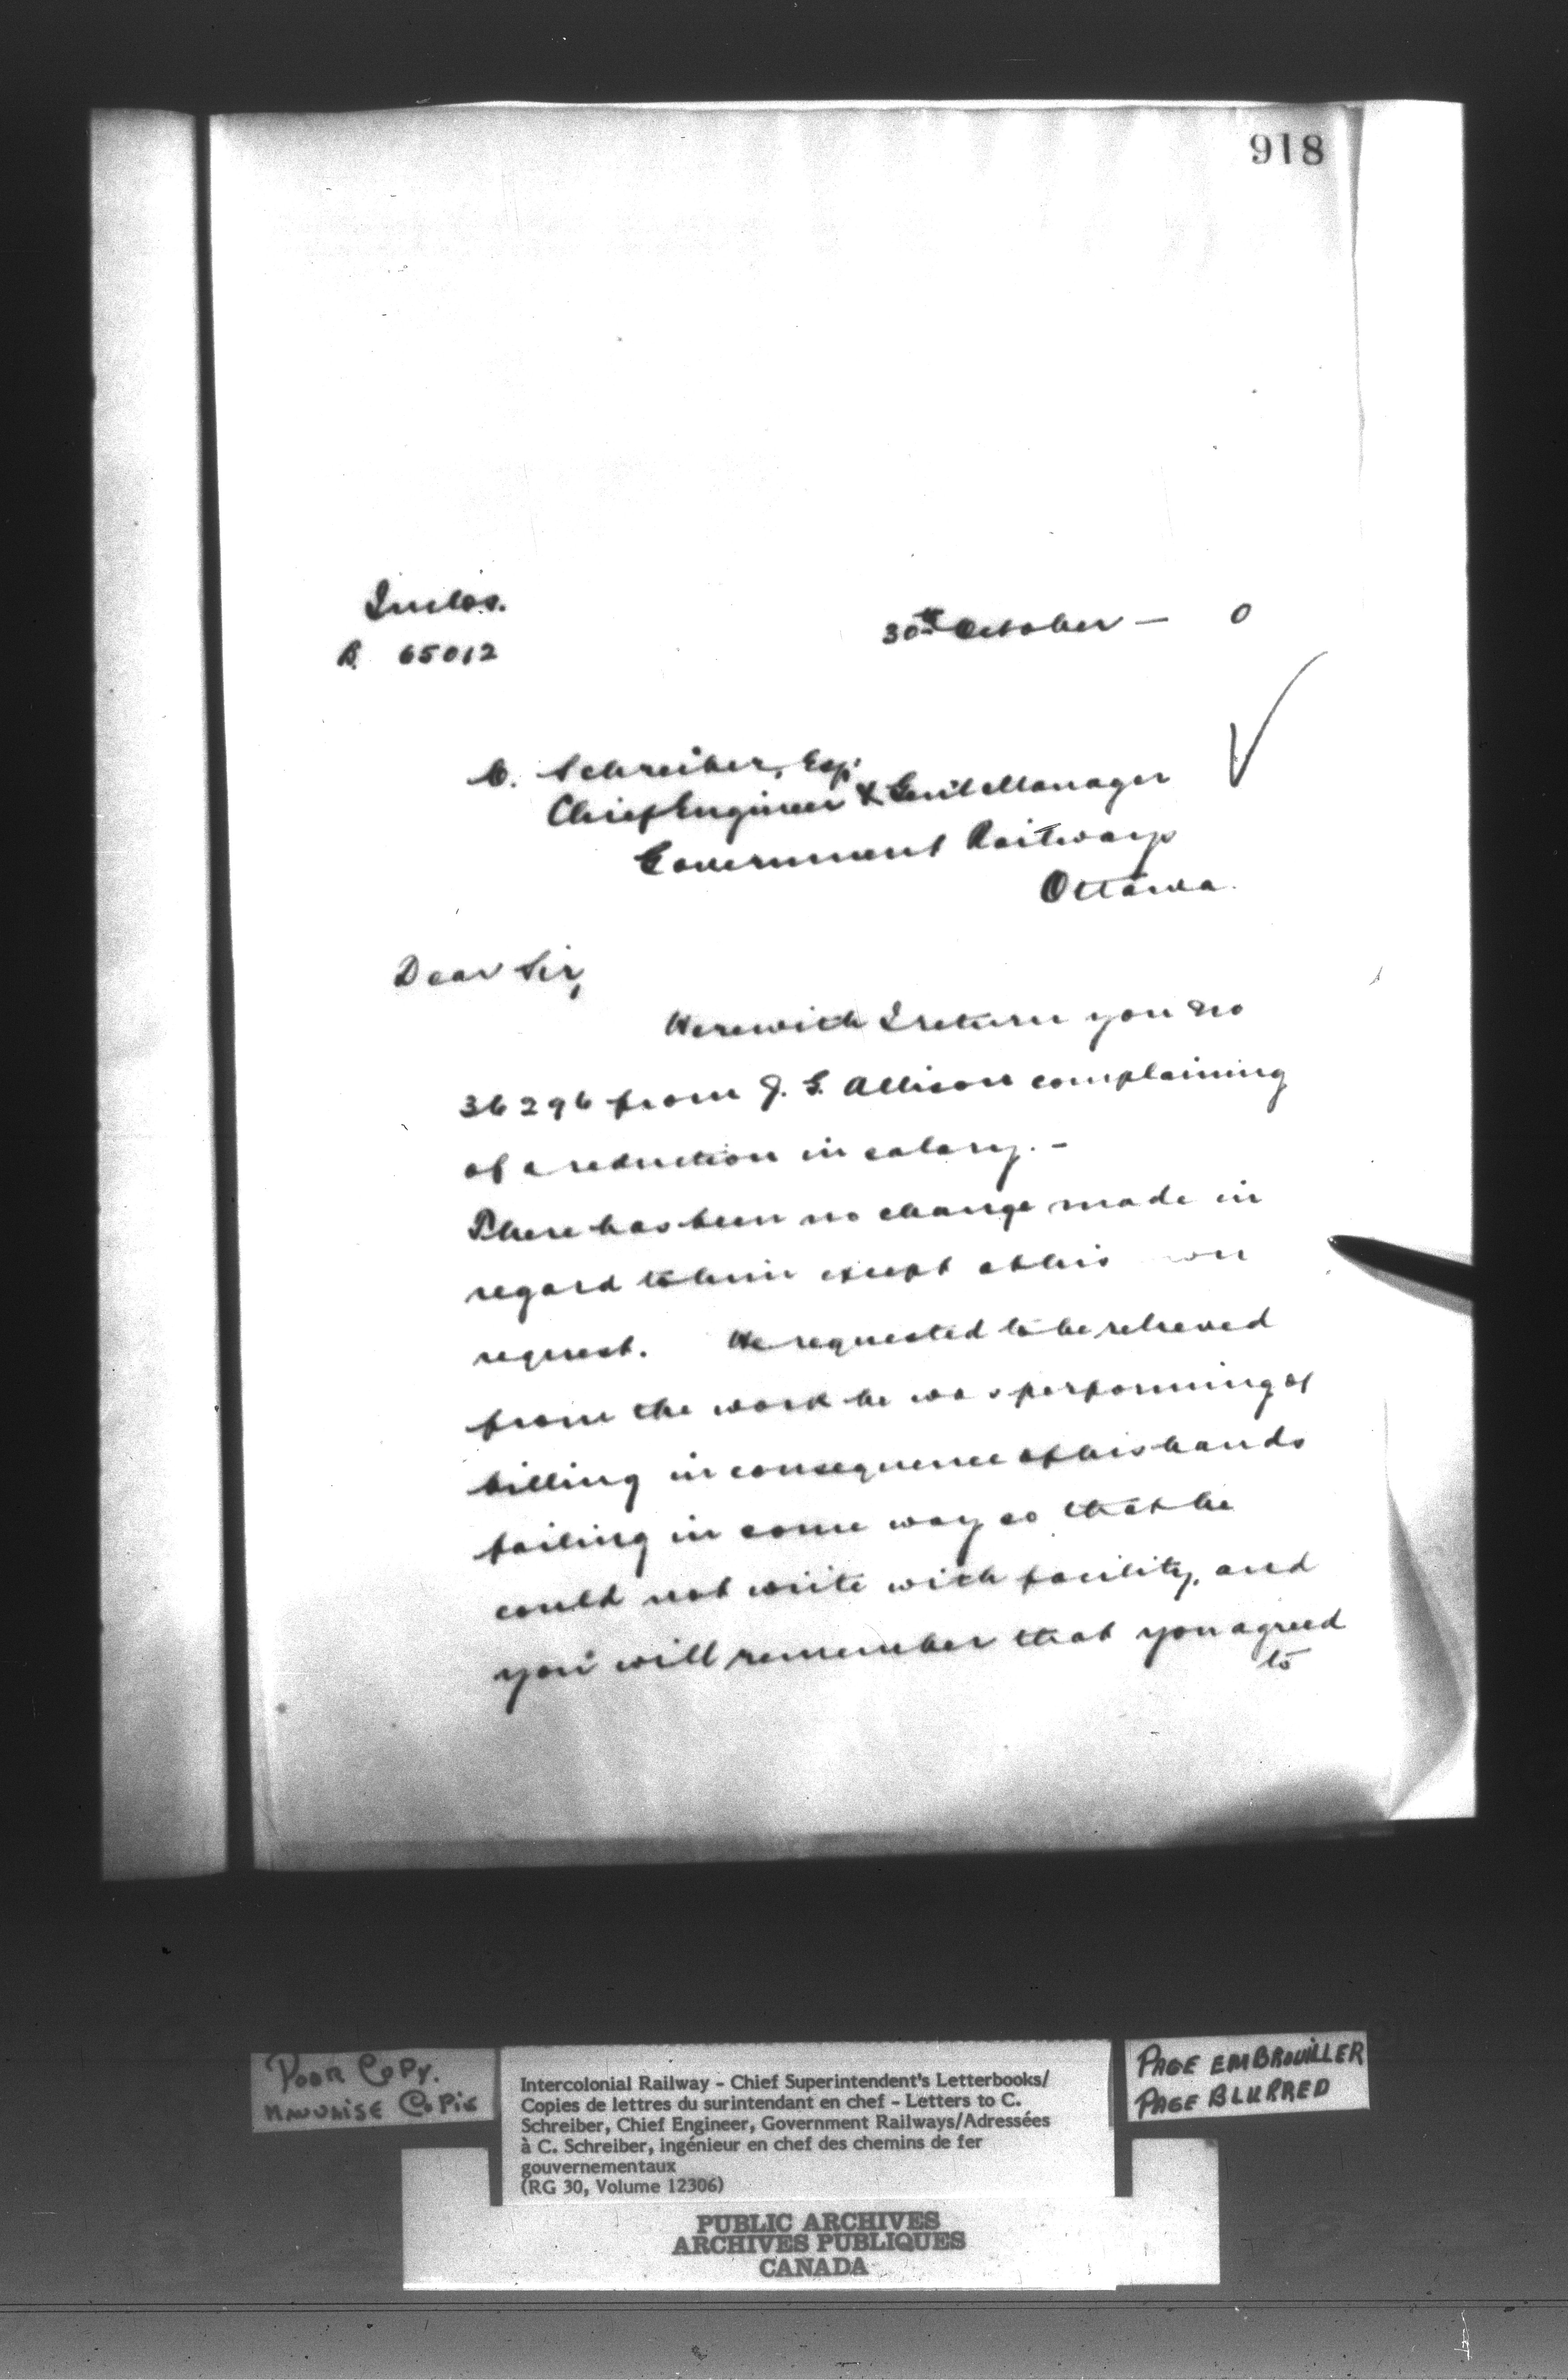 918
Inclos.
30th October — 0
R. 65012
C. Schreiber, Esq.
Chief Engineer & Genl Manager
Government Railways
Ottawa.
Dear Sir,
Herewith I return you No
36296 from J. G. Allison complaining
of a reduction in salary. -
There has been no change made in
regard to him except at his own
request. He requested to be relieved
from the work he was performing of
billing in consequence of his hands
failing in some way so that he
could not write with facility, and
you will remember that you agreed
to
POOR COPY.
MAUVAISE COPIE
Intercolonial Railway - Chief Superintendent's Letterbooks/
Copies de lettres du surintendant en chef - Letters to C.
Schreiber, Chief Engineer, Government Railways/Adressées
à C. Schreiber, ingénieur en chef des chemins de fer
gouvernementaux
(RG 30, Volume 12306)
PAGE EMBROUILLER
PAGE BLURRED
PUBLIC ARCHIVES
ARCHIVES PUBLIQUES
CANADA